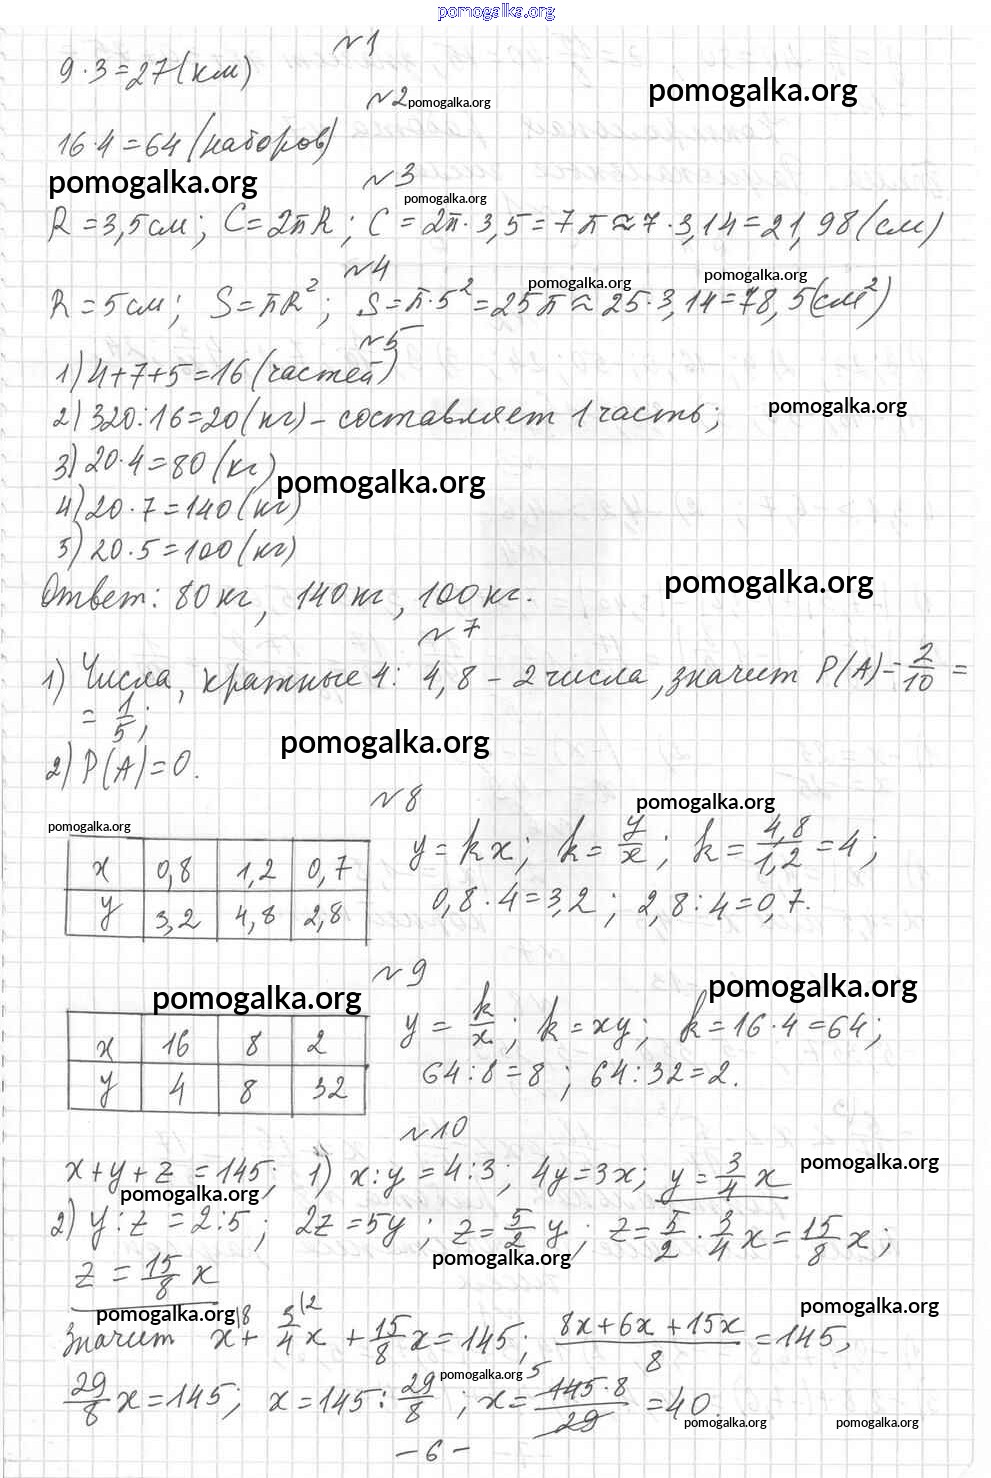 pomogalka.org
№1
9·3=27(км)
pomogalka.org
№2 pomogalka.org
16·4=64(наборов)
pomogalka.org
№3
pomogalka.org
R=3,5см; C=2πR; C=2π·3,5=7π≈7·3,14=21,98(см)
№4
pomogalka.org pomogalka.org
R=5см; S=πR²; S=π·5²=25π≈25·3,14=78,5(см²)
№5
1) 4+7+5=16(частей)
2) 320:16=20(кг)-составляет 1 часть;
pomogalka.org
3) 20·4=80(кг)
pomogalka.org
4) 20·7=140(кг)
5) 20·5=100(кг)
Ответ: 80кг, 140кг, 100кг.
pomogalka.org
№7
1) Числа, кратные 4: 4,8-2 числа, значит P(A)=2/10=
=1/5;
pomogalka.org
2) P(A)=0.
№8
pomogalka.org
pomogalka.org
x 0,8 1,2 0,7
y 3,2 4,8 2,8
y=kx; k=y/x; k=4,8/1,2=4;
0,8·4=3,2; 2,8:4=0,7.
№9
pomogalka.org
pomogalka.org
x 16 8 2
y 4 8 32
y=k/x; k=xy; k=16·4=64;
64:8=8; 64:32=2.
№10
x+y+z=145; 1) x:y=4:3; 4y=3x; y=3/4 x
pomogalka.org
pomogalka.org
2) y:z=2:5; 2z=5y; z=5/2 y; z=5/2·3/4 x=15/8 x;
pomogalka.org
z=15/8 x
pomogalka.org
pomogalka.org
Значит x|8+3/4|2 x+15/8 x=145; 8x+6x+15x/8=145,
pomogalka.org
29/8 x=145; x=145:29/8; x=5 145·8/29=40.
pomogalka.org pomogalka.org
-6-